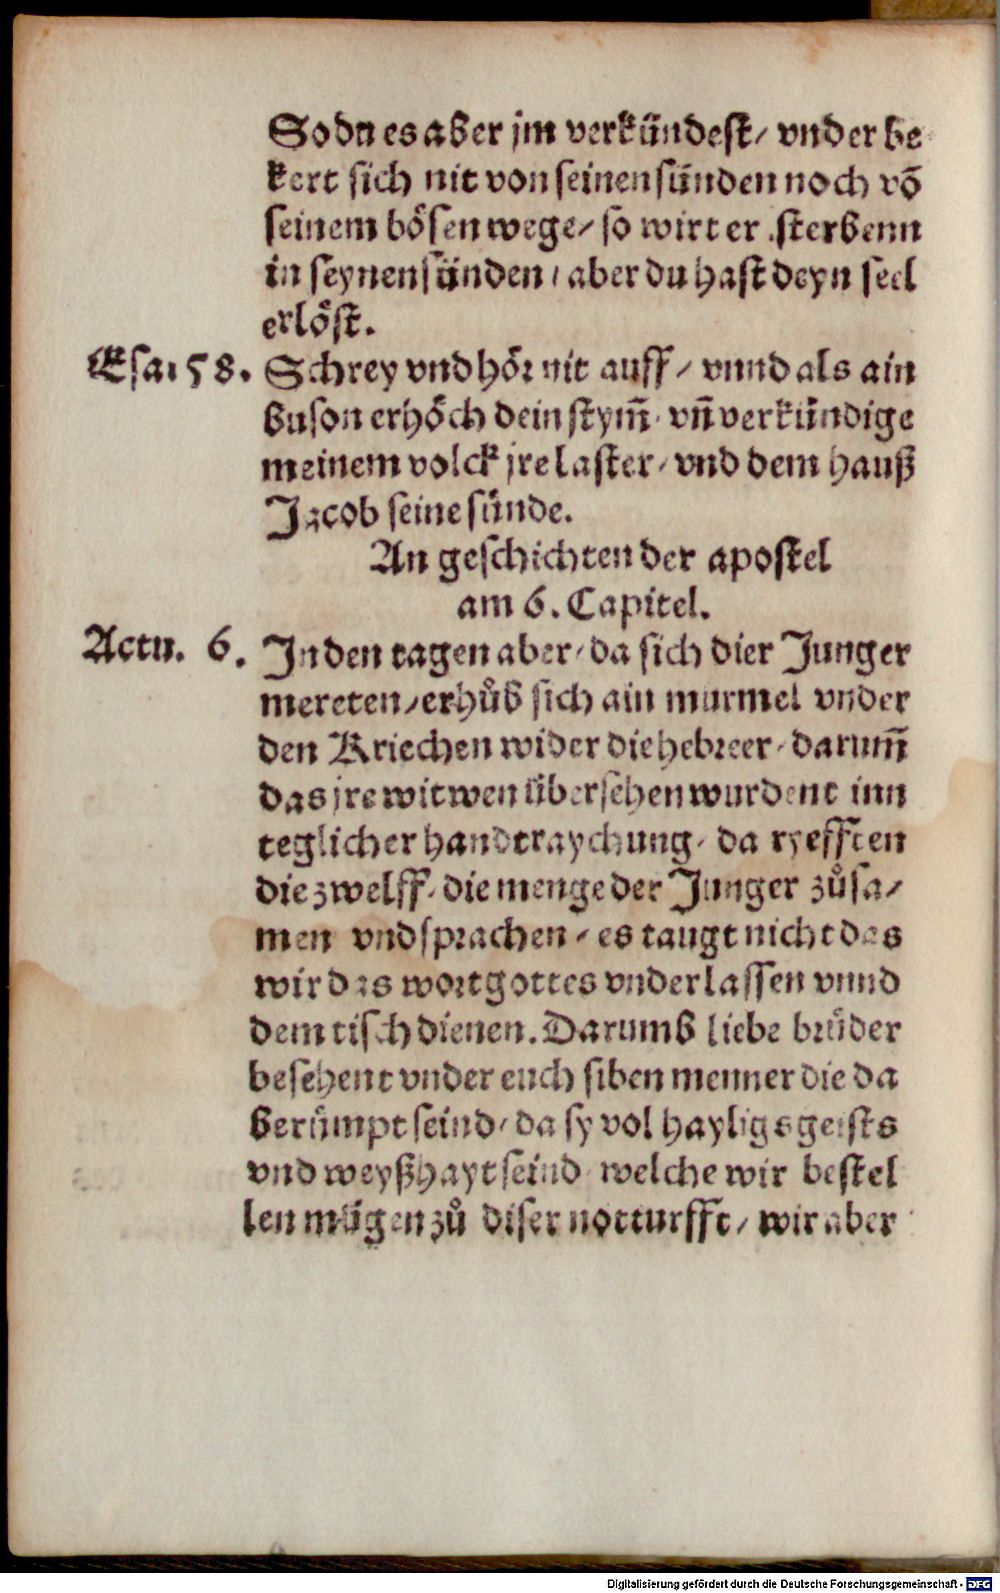 So du es aber jm verkündest/ vnd er be
kert sich nit von seinen sünden noch võ
seinem bösen wege/ so wirt er sterbenn
in seynen sünden/ aber du hast deyn seel
erlöst.
Esai 58. Schrey vnd hör nit auff/ vnnd als ain
buson erhöch dein stym̃ vñ verkündige
meinem volck jre laster/ vnd dem hauß
Jacob seine sünde.
An geschichten der apostel
am 6. Capitel.
Actu. 6. In den tagen aber/ da sich dier Junger
mereten/ erhůb sich ain murmel vnder
den Kriechen wider die hebreer/ darum̃
das jre witwen übersehen wurdent inn
teglicher handtraychung/ da ryefften
die zwelff/ die menge der Junger zůsa/
men vnd sprachen/ es taugt nicht das
wir das wort gottes vnderlassen vnnd
dem tisch dienen. Darumb liebe brůder
besehent vnder euch siben menner die da
berümpt seind/ da sy vol hayligs geists
vnd weyßhayt seind welche wir bestel
len mügen zů diser notturfft/ wir aber
Digitalisierung gefördert durch die Deutsche Forschungsgemeinschaft - DFG